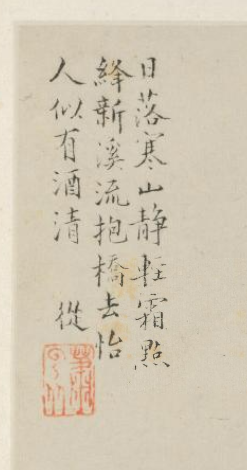 日落寒山静輕霜點
絳新溪流抱橋去怡
人似有酒清　從